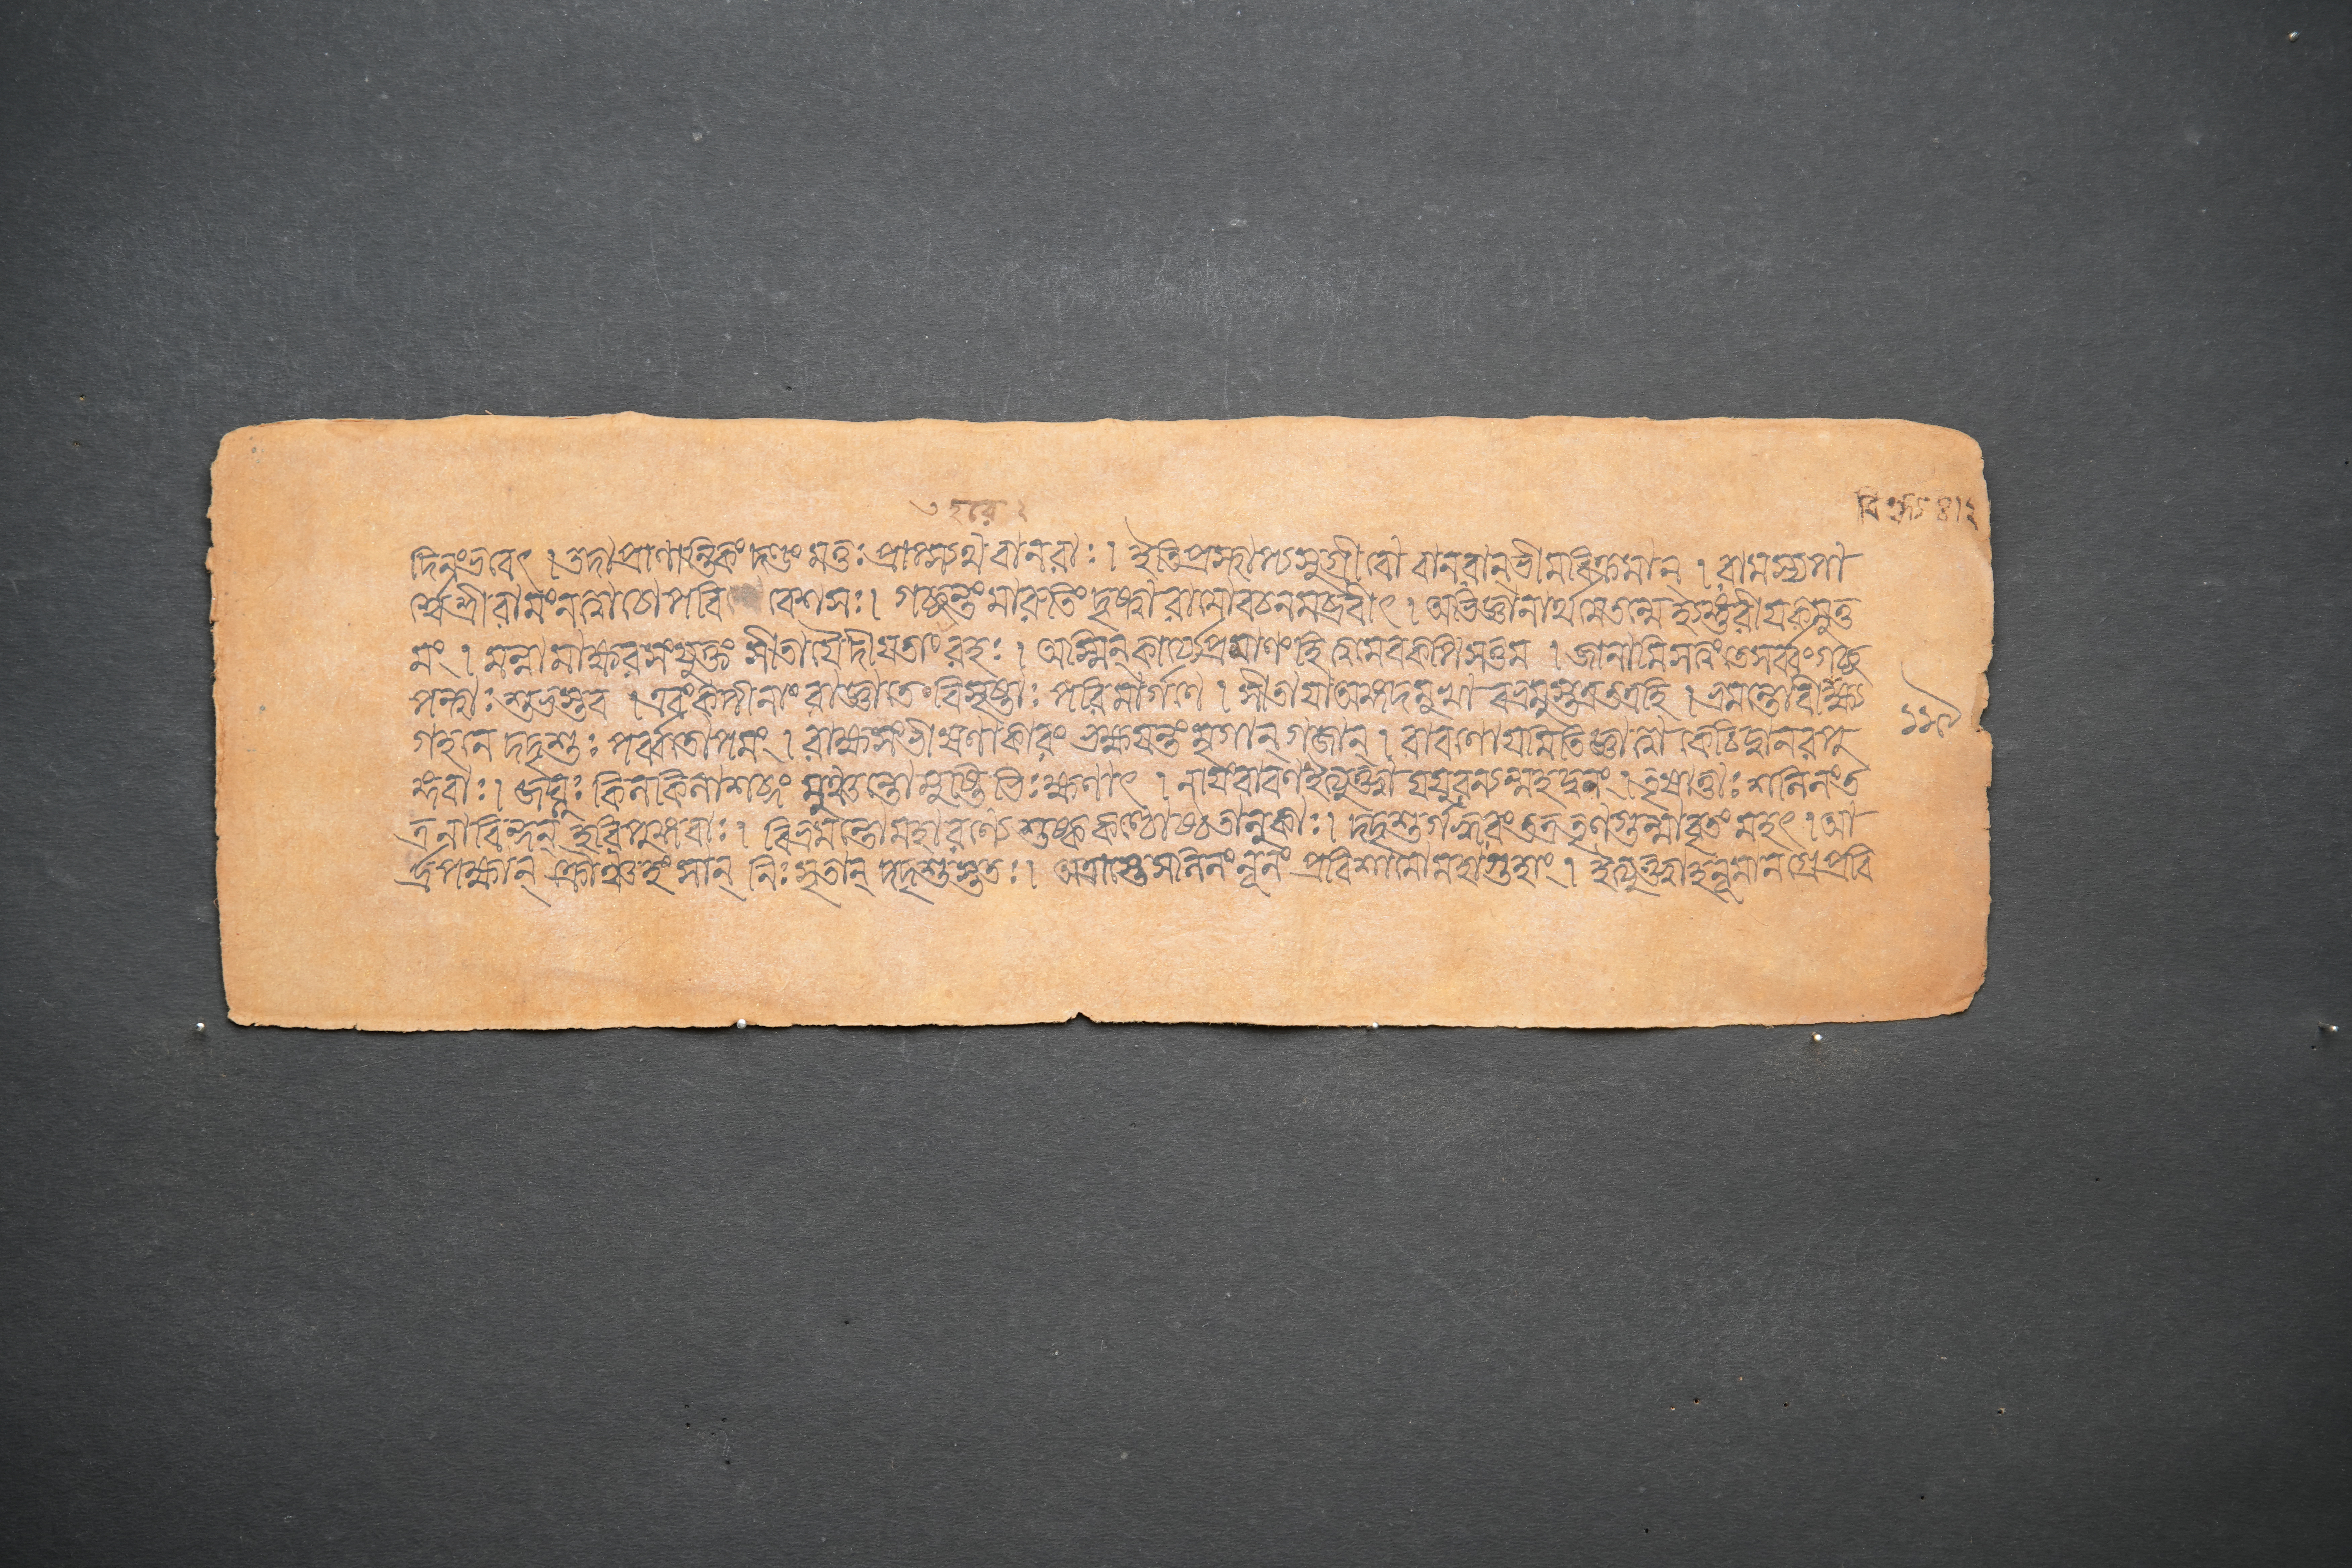 দিনংভবেৎ । তদাপ্রাণান্তিকং দণ্ডং মত্তঃ প্রাপ্স্যথ বানরাঃ । ইতিপ্রস্থাপ্যসুগ্রীবো বানরান্ভীমবিক্রমান্ । রামস্যপা
র্শ্বেশ্রীরামংনত্বাচোপবিবেশসঃ । গচ্ছন্তংমারুতিং দৃষ্ট্বারামোবচনমব্রবীৎ । অভিজ্ঞানার্থমেতন্মেহ্যঙ্গুরীয়কমুত্ত
মং । মন্নামাক্ষরসংযুক্তং সীতায়ৈদীয়তাংরহঃ । অস্মিন্কার্য্যেপ্রমাণংহি ত্বমেবকপিসত্তম । জানামিসত্ত্বংতেসর্ব্বংগচ্ছ
পন্থাঃশুভস্তব । এবংকপীনাং রাজ্ঞাতে বিসৃষ্টাঃ পরিমার্গণে । সীতায়াঅঙ্গদমুখা বভ্রমুস্তত্রতত্রহি । ভ্রমন্তোবিন্ধ্য
গহনে দদৃশুঃ পর্ব্বতোপমং । রাক্ষসংভীষণাকারং ভক্ষয়ন্তংমৃগান্ গজান্ । রাবণোয়মিতিজ্ঞাত্বা কেচিদ্বানরপু
ঙ্গবাঃ । জঘ্নুঃ কিলকিলাশব্দং মুঞ্চন্তোমুষ্টিভিঃক্ষণাৎ । নায়ংরাবণইত্যুক্ত্বা যযুরন্যন্মহদ্বনং । তৃষার্ত্তাঃ শলিলংত
ত্রনাবিন্দন্ হরিপুঙ্গবাঃ । বিভ্রমন্তোমহারণ্যে শুষ্ককণ্ঠোষ্ঠতালুকাঃ । দদৃশুর্গহ্বরংতত্র তৃণগুল্মাবৃতং মহৎ । আ
র্দ্রপক্ষান্ ক্রৌঞ্চহংসান্ নিঃসৃতান্ দদৃশুস্ততঃ । অত্রাস্তেসলিলংনূনং প্রবিশামোমহাগুহাং । ইত্যুক্ত্বাহনূমানগ্রেপ্রবি